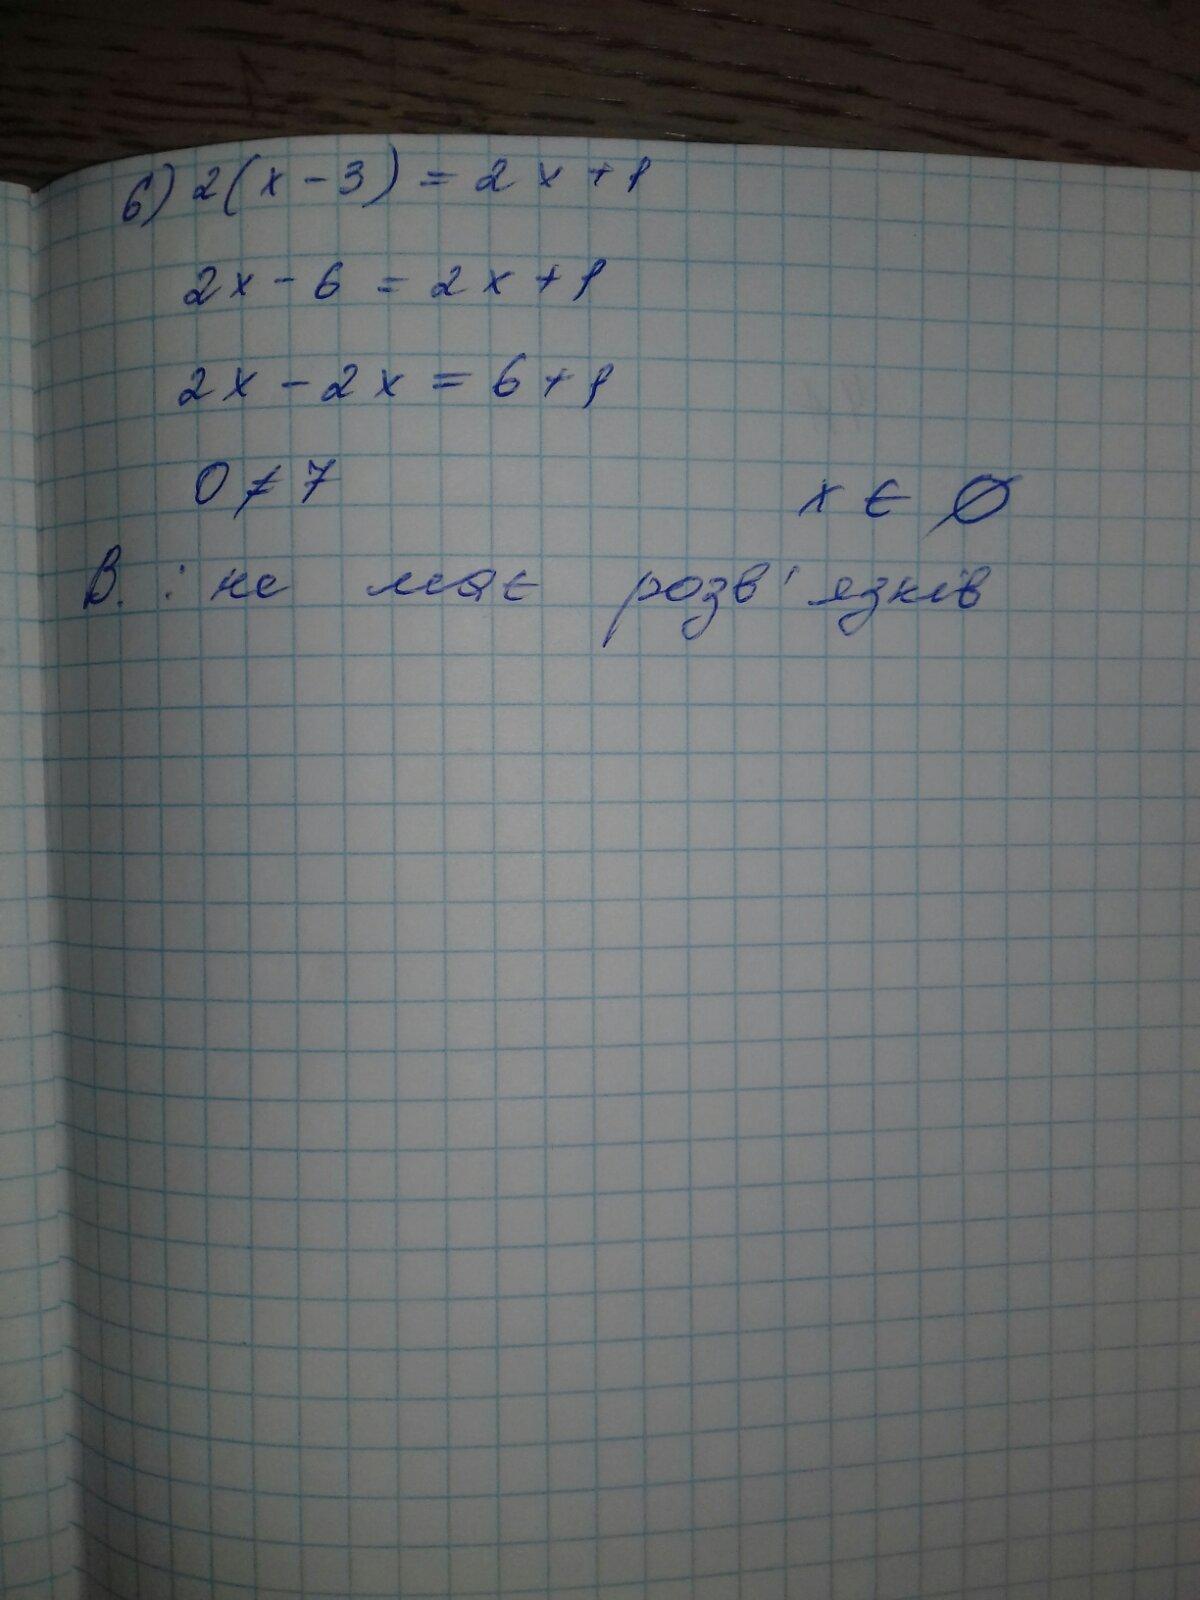 6) 2(x - 3) = 2x + 1
2x - 6 = 2x + 1
2x - 2x = 6 + 1
0 ≠ 7 x ∈ ∅
В. : не має розв'язків